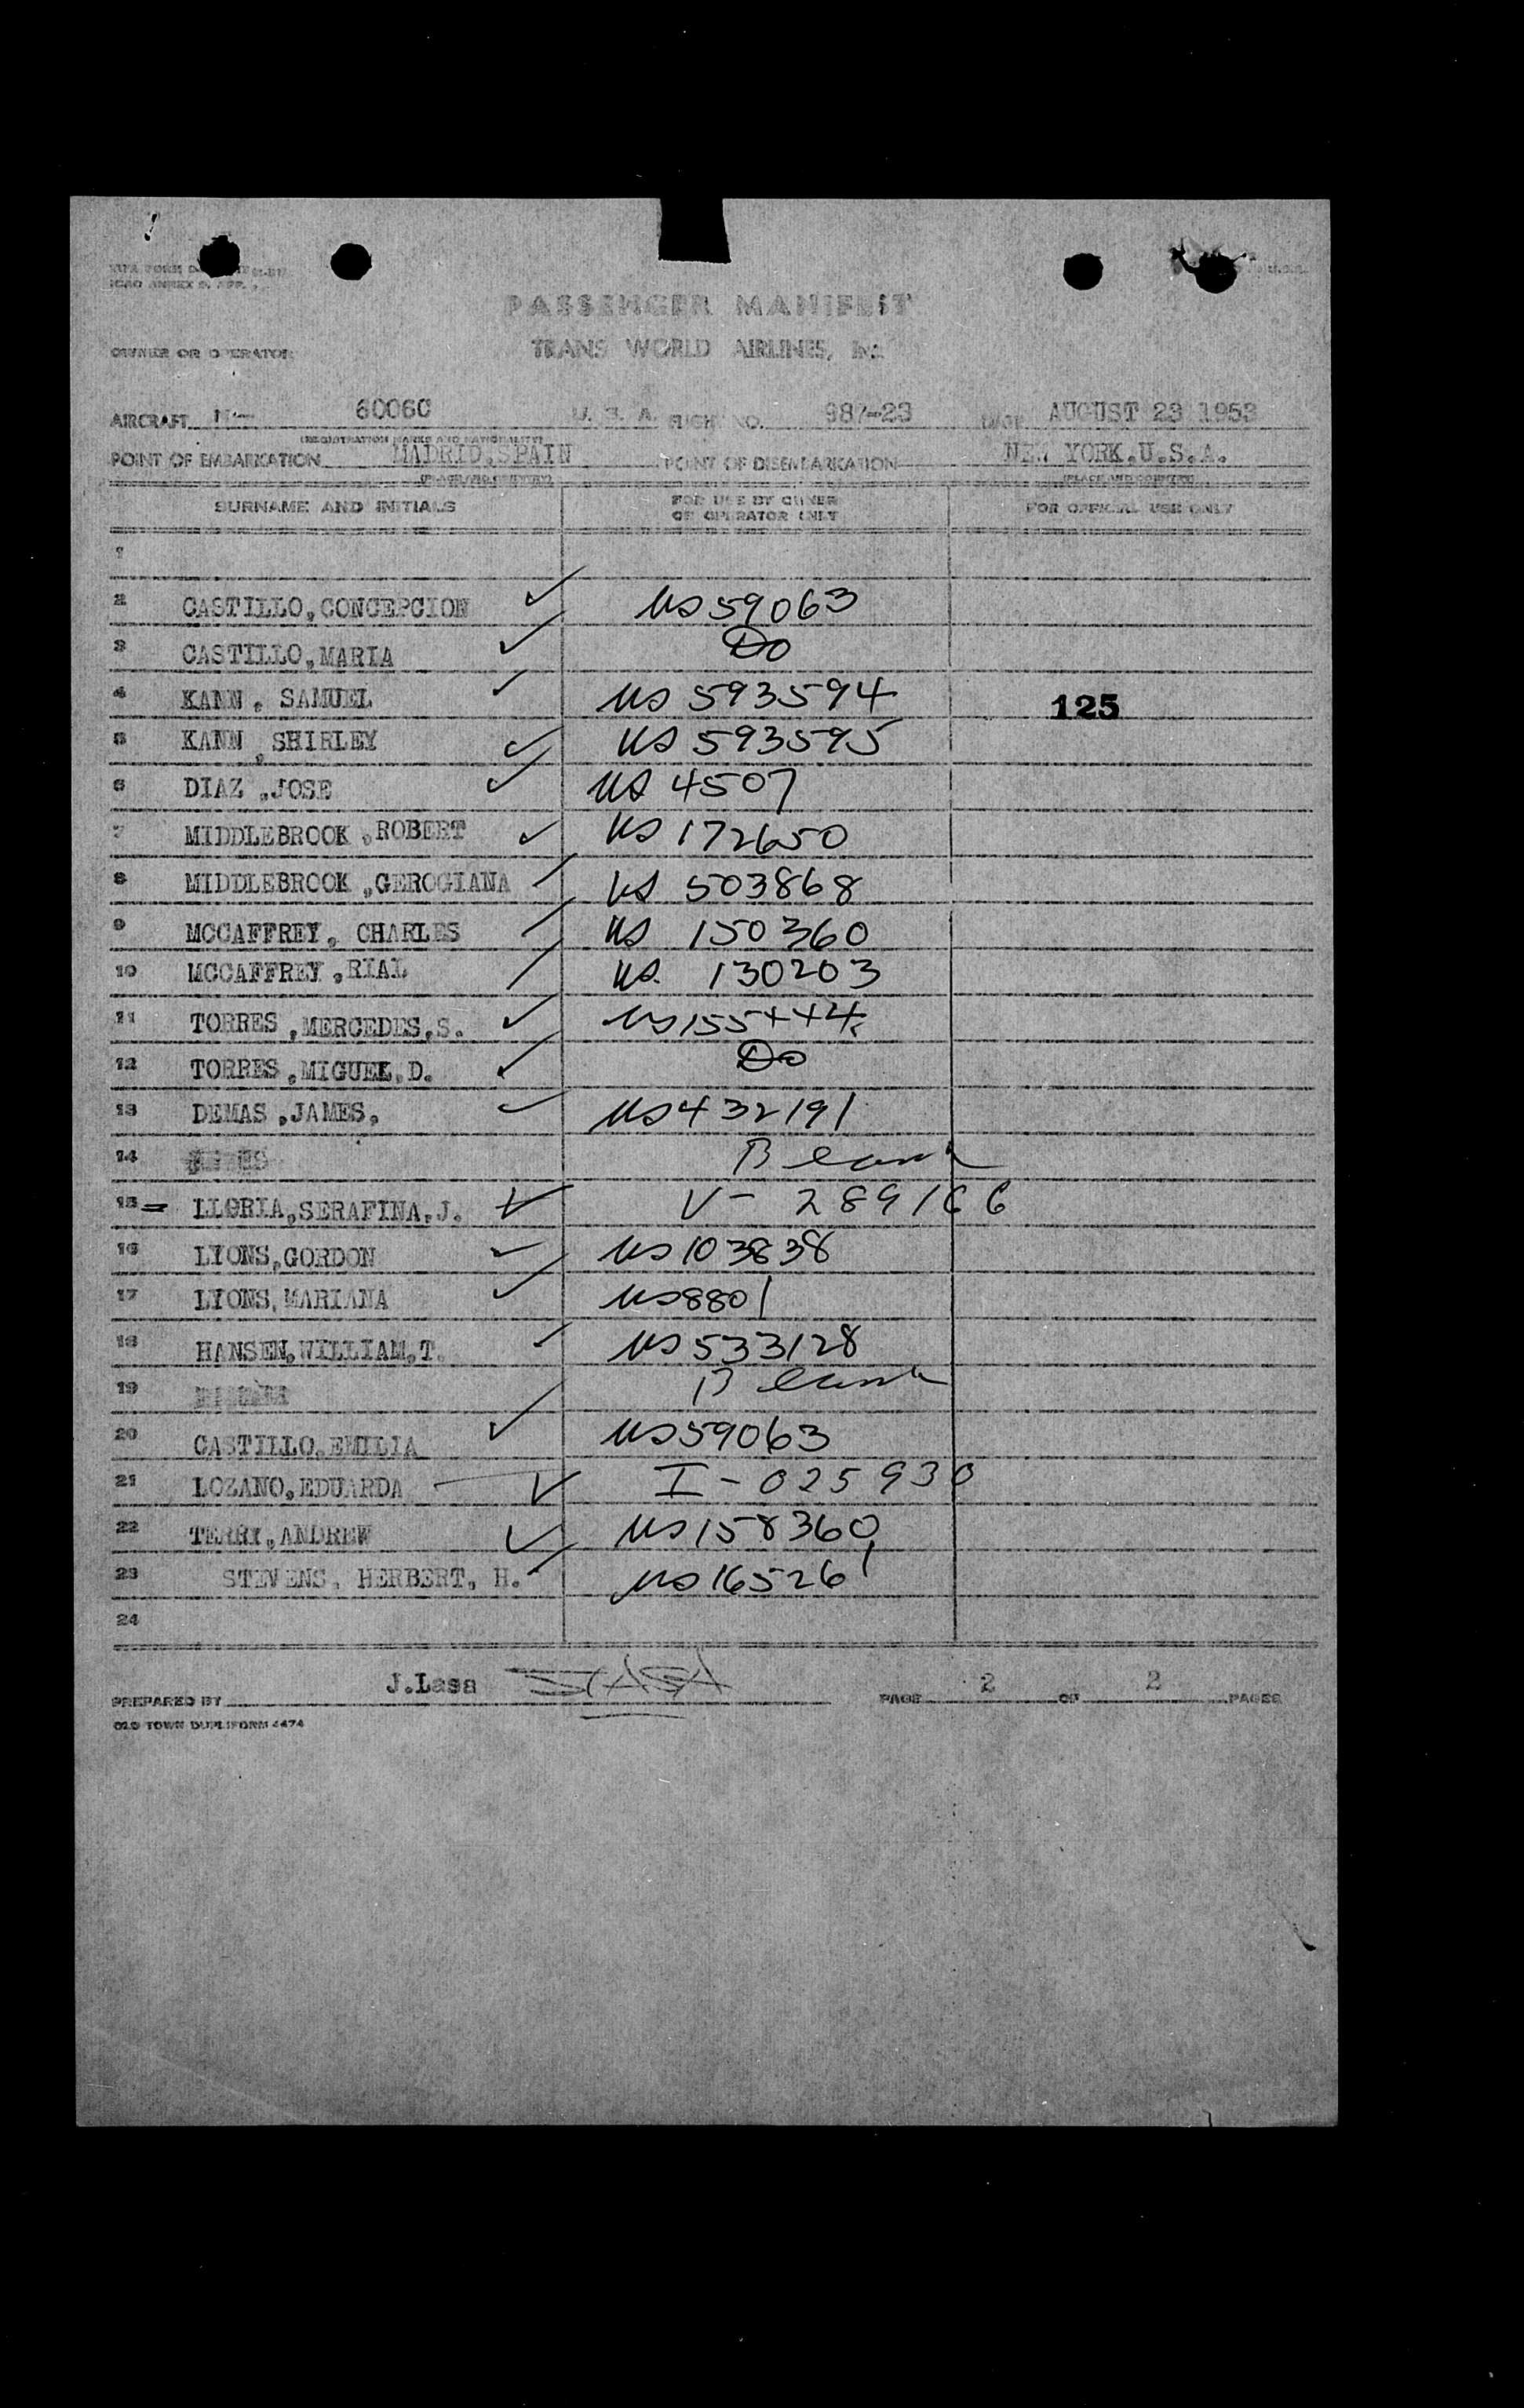 PASSENGER MANIFEST
OWNER OR OPERATOR TRANS WORLD AIRLINES, INC
AIRCRAFT N- 6006C U. S. A. FLIGHT NO. 987-23 DATE AUGUST 23 1953
(REGISTRATION MARKS AND NATIONALITY)
POINT OF EMBARKATION MADRID,SPAIN POINT OF DISEMBARKATION NEW YORK.U.S.A.
(PLACE AND COUNTRY) (PLACE AND COUNTRY)
SURNAME AND INITIALS FOR USE BY OWNER OR OPERATOR ONLY FOR OFFICIAL USE ONLY
1
2 CASTILLO,CONCEPCION ✓ US 59063
3 CASTILLO,MARIA ✓ Do
4 KANN, SAMUEL ✓ US 593594 125
5 KANN ,SHIRLEY ✓ US 593595
6 DIAZ ,JOSE ✓ US 4507
7 MIDDLEBROOK ,ROBERT ✓ US 172650
8 MIDDLEBROOK ,GEROGIANA US 503868
9 MCCAFFREY, CHARLES US 150360
10 MCCAFFREY ,RIAL US. 130203
11 TORRES ,MERCEDES,S. ✓
12 TORRES ,MIGUEL,D. ✓ Do
13 DEMAS ,JAMES, ✓ US 432191
14 Blank
15 = LLORIA,SERAFINA,J. ✓ V- 289166
16 LYONS,GORDON ✓ US 103838
17 LYONS,MARIANA ✓ US 8801
18 HANSEN,WILLIAM,T. ✓ US 533128
19 Blank
20 CASTILLO,EMILIA ✓ US 59063
21 LOZANO,EDUARDA — ✓ I-025930
22 TERRY,ANDREW ✓ US 158360
23 STEVENS, HERBERT, H. ✓ US 165261
24
PREPARED BY J.Lasa PAGE 2 OF 2 PAGES
OLD TOWN DUPLIFORM 4474